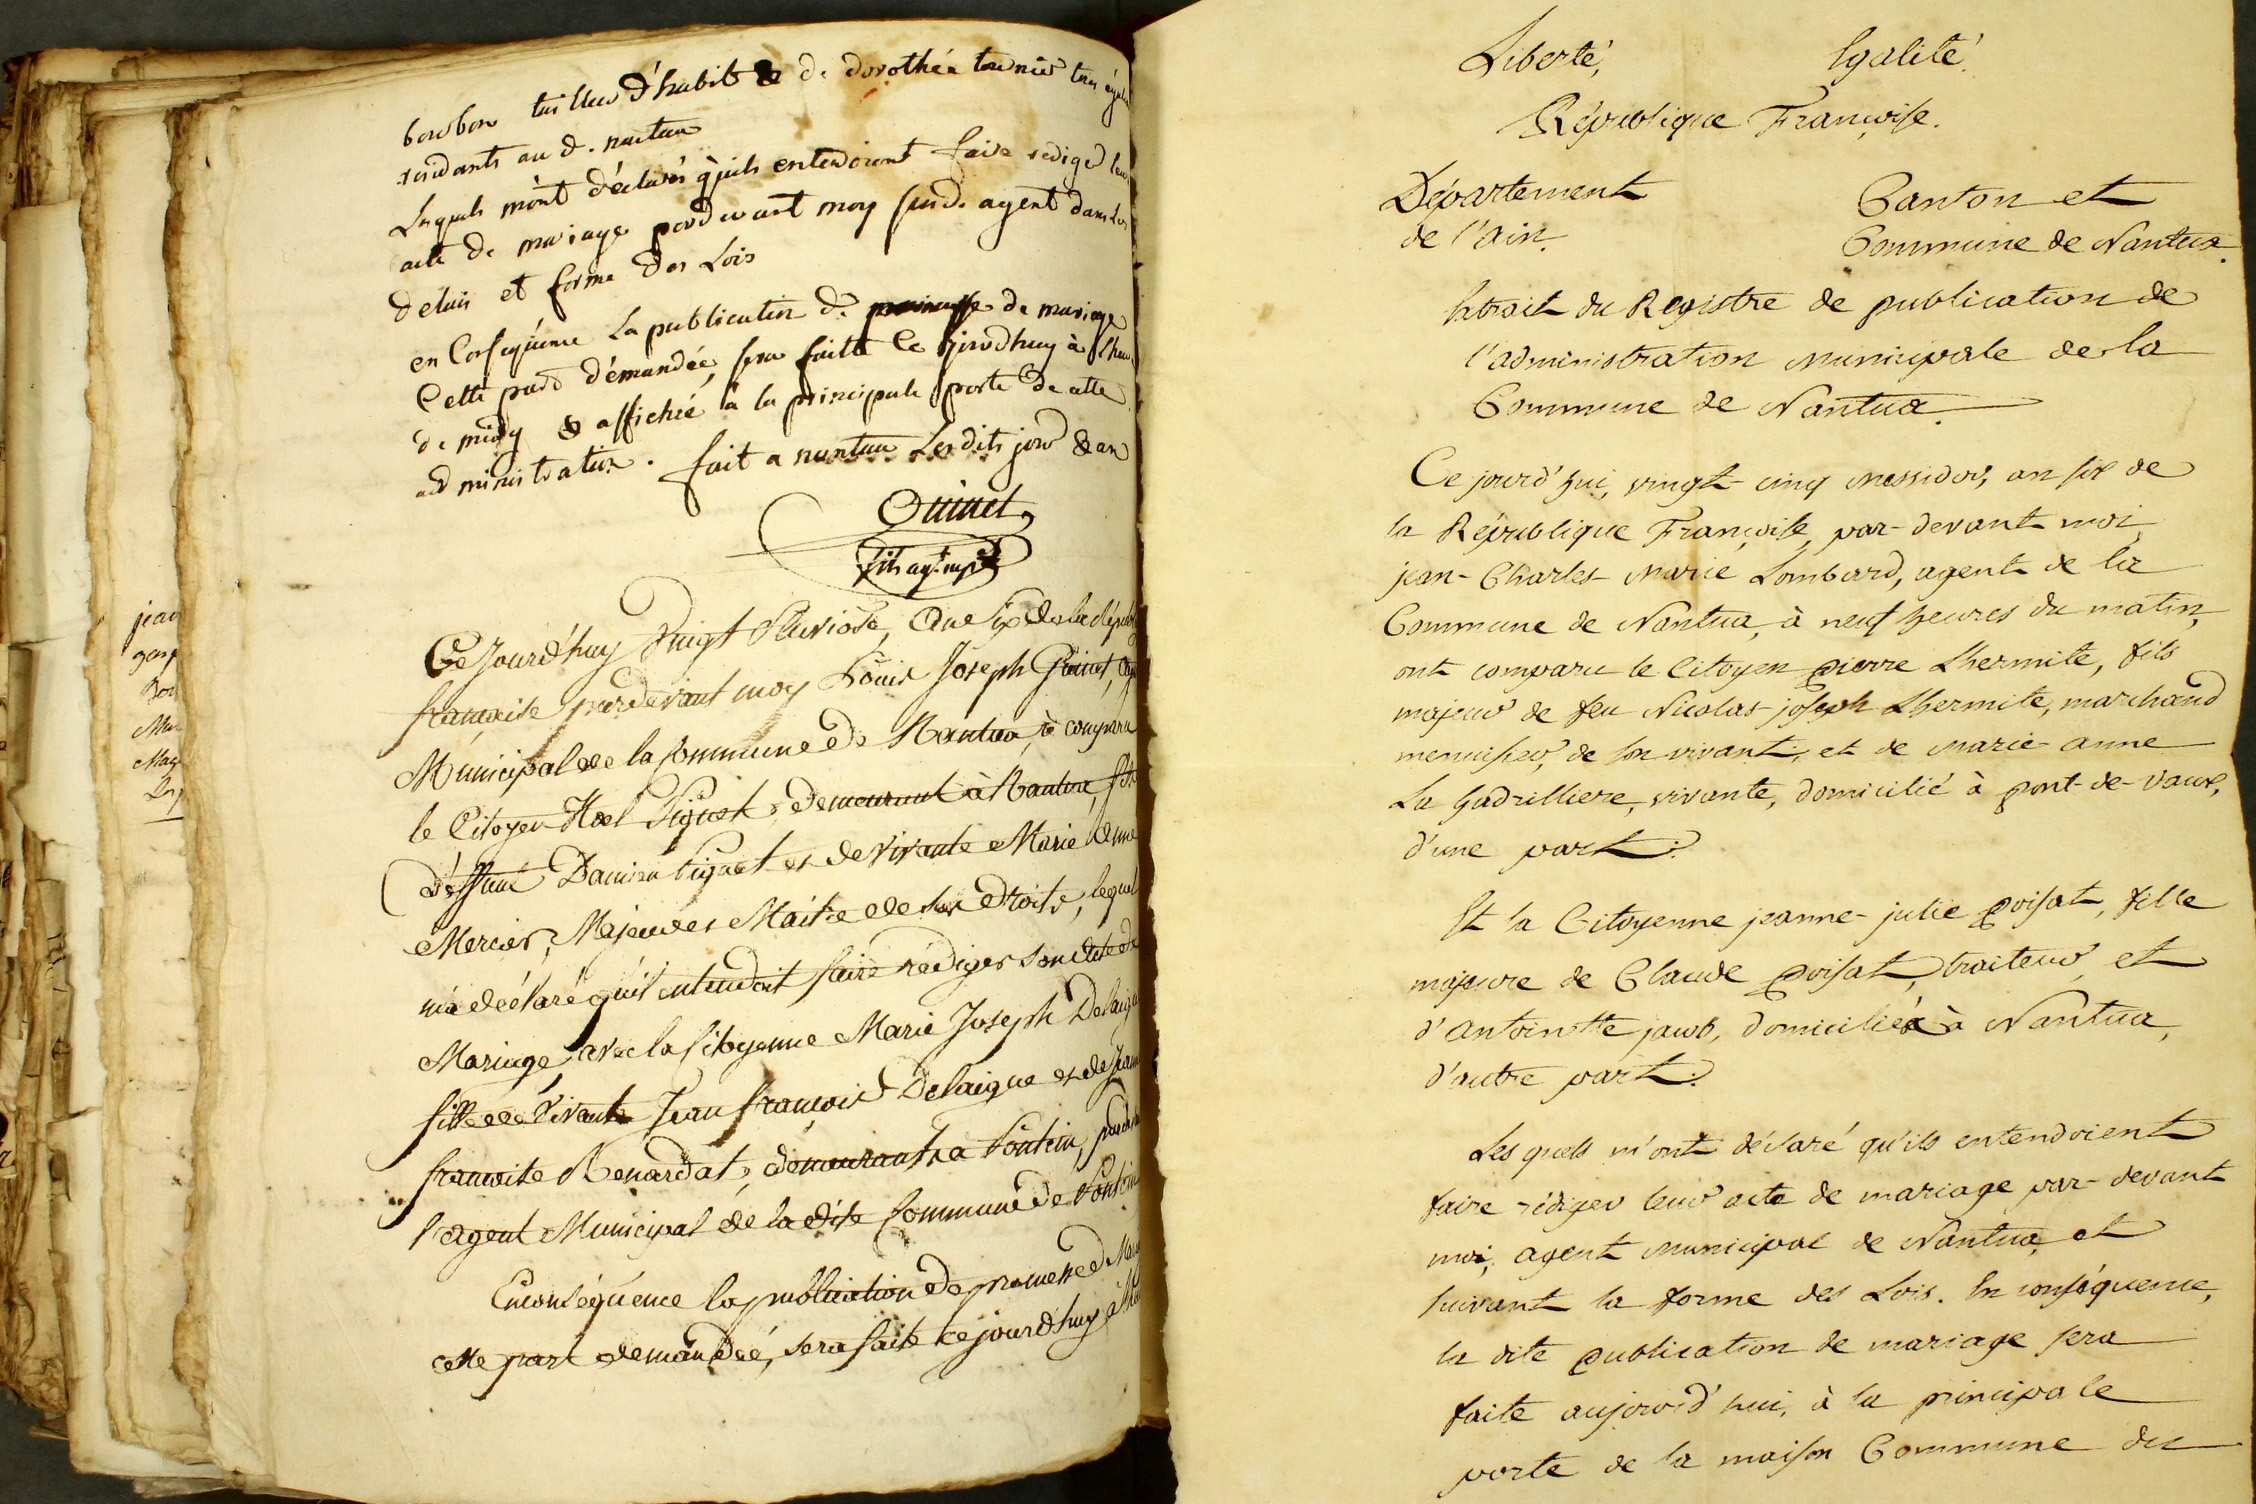 bourbon tailleur d'habit & de dorothée tournier tous égal
résidants au d. nantua
Lesquels m'ont déclarés qu'ils entendoient faire rédiger leur
acte de mariage pardevant moy susd. agent dans les
délais et forme des Lois
en Conséquence La publication de promesse de mariage
Cette part démandée, sera faitte Ce jourdhuy à Lheure
de midy & affichée à la principale porte de cette
administration. fait a nantua Lesdits jour & an
Guinet
fils agt. mpal
jean
gasp
Bou
Mar
Mag
Lesq
Ce Jourd'huy Vingt Pluviose, An Six de la Répub
française pardevant moy Louis Joseph Guinet, Age
Municipal de la Commune de Nantua, à comparu
le Citoyen Noel Piquet, demeurant à Nantua, fils
déffunt Damien Piquet et de vivante Marie Anne
Mercier, Majeur et Maitre de ses droits, lequel
m'a déclaré qu'il entendoit faire rédiger son Acte de
Mariage avec la Citoyenne Marie Joseph Delaigue
fille de vivants Jean françois Delaigue et de Jeanne
francoise Benardat, demeurants a Pontin, pardevant
l'agent Municipal de la dite Commune de Pontin
En conséquence la publication de promesse de Mariage
cette part demandée, sera faite ce jourd'huy à
Liberté, Egalité.
République Françoise.
Département Canton et
de l'ain. Commune de Nantua.
Extrait du Registre de publication de
l'administration municipale de la
Commune de Nantua.
Ce jourd'hui, vingt cinq messidor, an six de
la République Françoise, par-devant moi
jean-Charles-Marie Lombard, agent de la
Commune de Nantua, à neuf heures du matin,
ont comparu le Citoyen pierre Lhermite, fils
majeur de feu Nicolas joseph Lhermite, marchand
menuisier, de son vivant, et de marie-anne
La hadrilliere, vivante, domicilié à pont-de-vaux,
d'une part.
Et la Citoyenne jeanne-julie poisat, fille
majeure de Claude poisat, traiteur, et
d'antoinette jacob, domiciliée à Nantua,
d'autre part.
Les quels m'ont déclaré qu'ils entendoient
faire rédiger leur acte de mariage par-devant
moi, agent municipal de Nantua, et
suivant la forme des Lois. En conséquence,
la dite publication de mariage sera
faite aujourd'hui, à la principale
porte de la maison Commune du